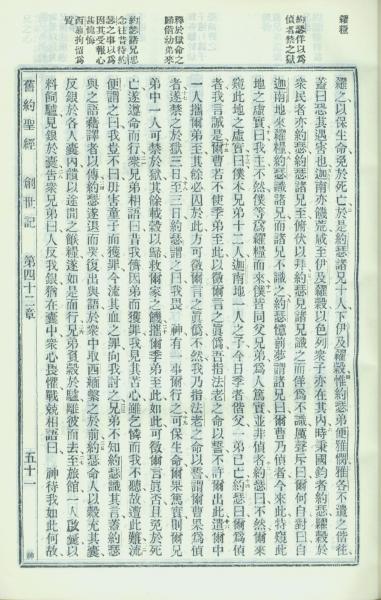 糴糧
約瑟佯以為
偵者禁之獄
釋於獄命之
歸偕幼弟來
約瑟諸兄思
念往昔待約
瑟之事以為
因其受報心
西緬拘留為
質
糴之以保生命免於死亡於是約瑟諸兄十人下伊及糴穀惟約瑟弟便雅憫雅各不遣之偕往
蓋曰恐其遇害也迦南亦饑荒咸至伊及糴穀以色列衆子亦在其內時秉國鈞者約瑟糶穀於
衆民者亦約瑟約瑟諸兄至俯伏以拜約瑟見諸兄識之而佯為不識厲聲曰爾何自對曰自
迦南地來糴糧約瑟識諸兄而諸兄不識之約瑟憶前夢謂諸兄曰爾曹乃偵者今來此特窺此
地之虛實曰我主不然僕等為糴糧而來僕皆同父兄弟為人篤實並非偵者約瑟曰不然爾來
窺此地之虛實曰僕本兄弟十二人迦南地一人之子今日季者偕父一弟已亡約瑟曰爾為偵
者我言誠是爾曹若不使季弟至此以徵爾言之眞僞吾指法老之命以誓不許爾出此遣爾中
一人攜爾弟至其餘必囚於此方可徵爾言之眞僞不然我乃指法老之命以誓謂爾曹果為偵
者遂禁之於獄三日至三日約瑟謂之曰我畏 神有一事爾行之可保生命爾果篤實則爾兄
弟中一人可禁於獄其餘載穀以歸救爾家之饑攜爾季弟至此如此可徵爾言眞否且免於死
亡遂遵命而行衆兄弟相語曰昔我儕因弟而獲罪我見其苦心雖乞憐而我不聽故遭此難流
便謂之曰我豈不曰毋害童子而獲罪今流其血之罪向我討之兄弟不知約瑟識其言蓋約瑟
與之語藉譯者以傳約瑟遂退而哭復出與語於衆中取西緬繫之於前約瑟命人以穀充其囊
反銀於各人囊內饋以途間之餱糧遂如是而行兄弟負穀於驢離彼而去至旅館一人啟囊以
料飼驢見銀於囊告衆兄弟曰人反我銀猶在囊中衆心喪懼戰兢相語曰 神待我如此何故
舊約聖經 創世記 第四十二章 五十